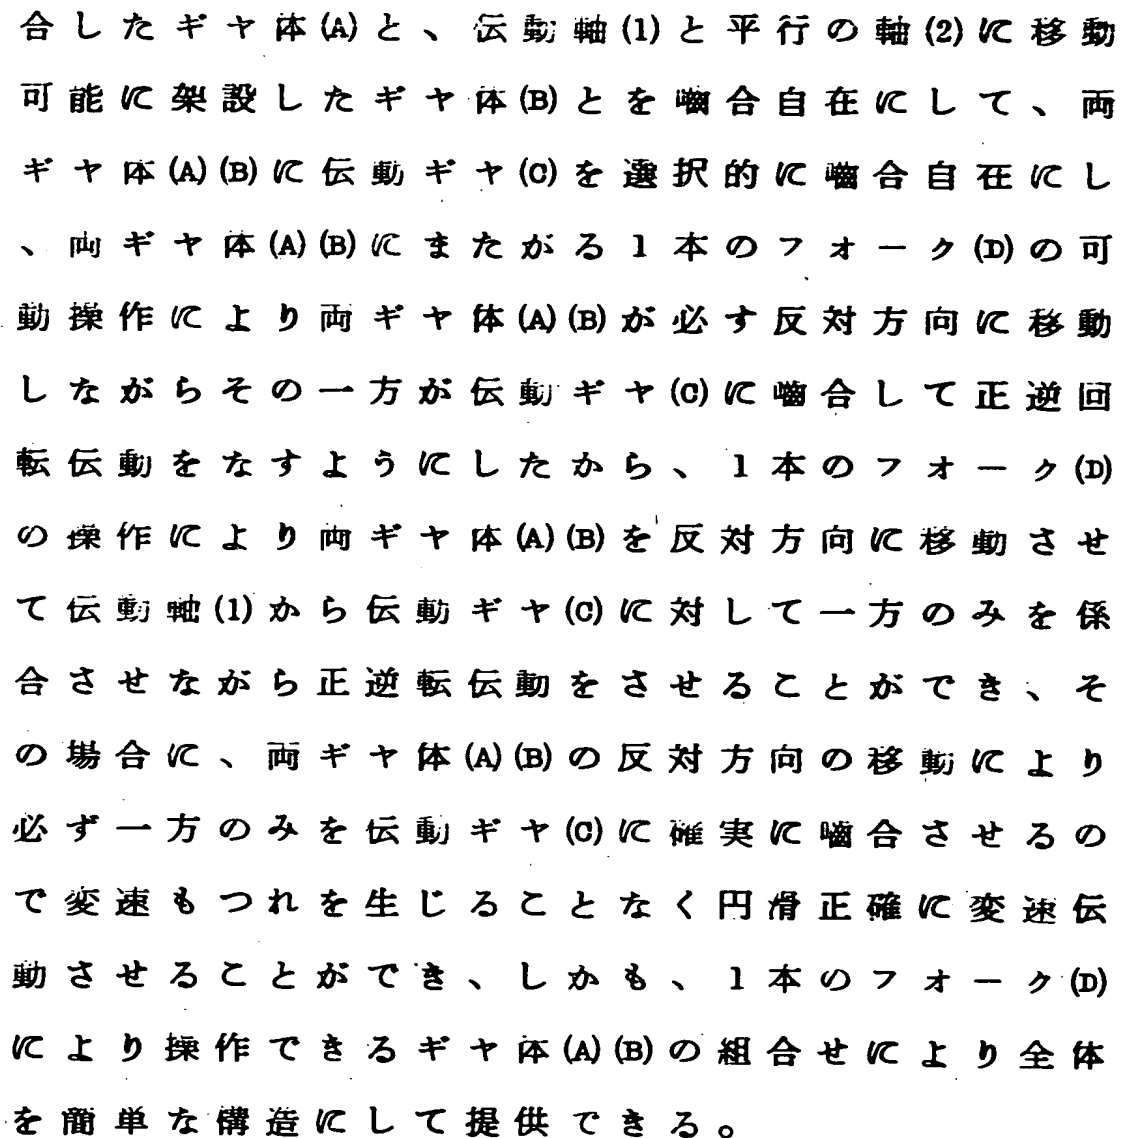 合したギヤ体(A)と、伝動軸(1)と平行の軸(2)に移動
可能に架設したギヤ体(B)とを嚙合自在にして、両
ギヤ体(A)(B)に伝動ギヤ(C)を選択的に嚙合自在にし
、両ギヤ体(A)(B)にまたがる1本のフォーク(D)の可
動操作により両ギヤ体(A)(B)が必す反対方向に移動
しながらその一方が伝動ギヤ(C)に嚙合して正逆回
転伝動をなすようにしたから、1本のフォーク(D)
の操作により両ギヤ体(A)(B)を反対方向に移動させ
て伝動軸(1)から伝動ギヤ(C)に対して一方のみを係
合させながら正逆転伝動をさせることができ、そ
の場合に、両ギヤ体(A)(B)の反対方向の移動により
必ず一方のみを伝動ギヤ(C)に確実に嚙合させるの
で変速もつれを生じることなく円滑正確に変速伝
動させることができ、しかも、1本のフォーク(D)
により操作できるギヤ体(A)(B)の組合せにより全体
を簡単な構造にして提供できる。